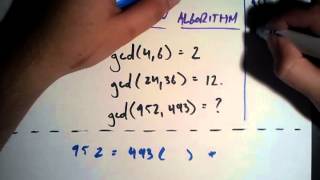 ALGORITHM
gcd(4,6) = 2
gcd(24,36) = 12.
gcd(952, 493) = ?
952 = 493( ) +